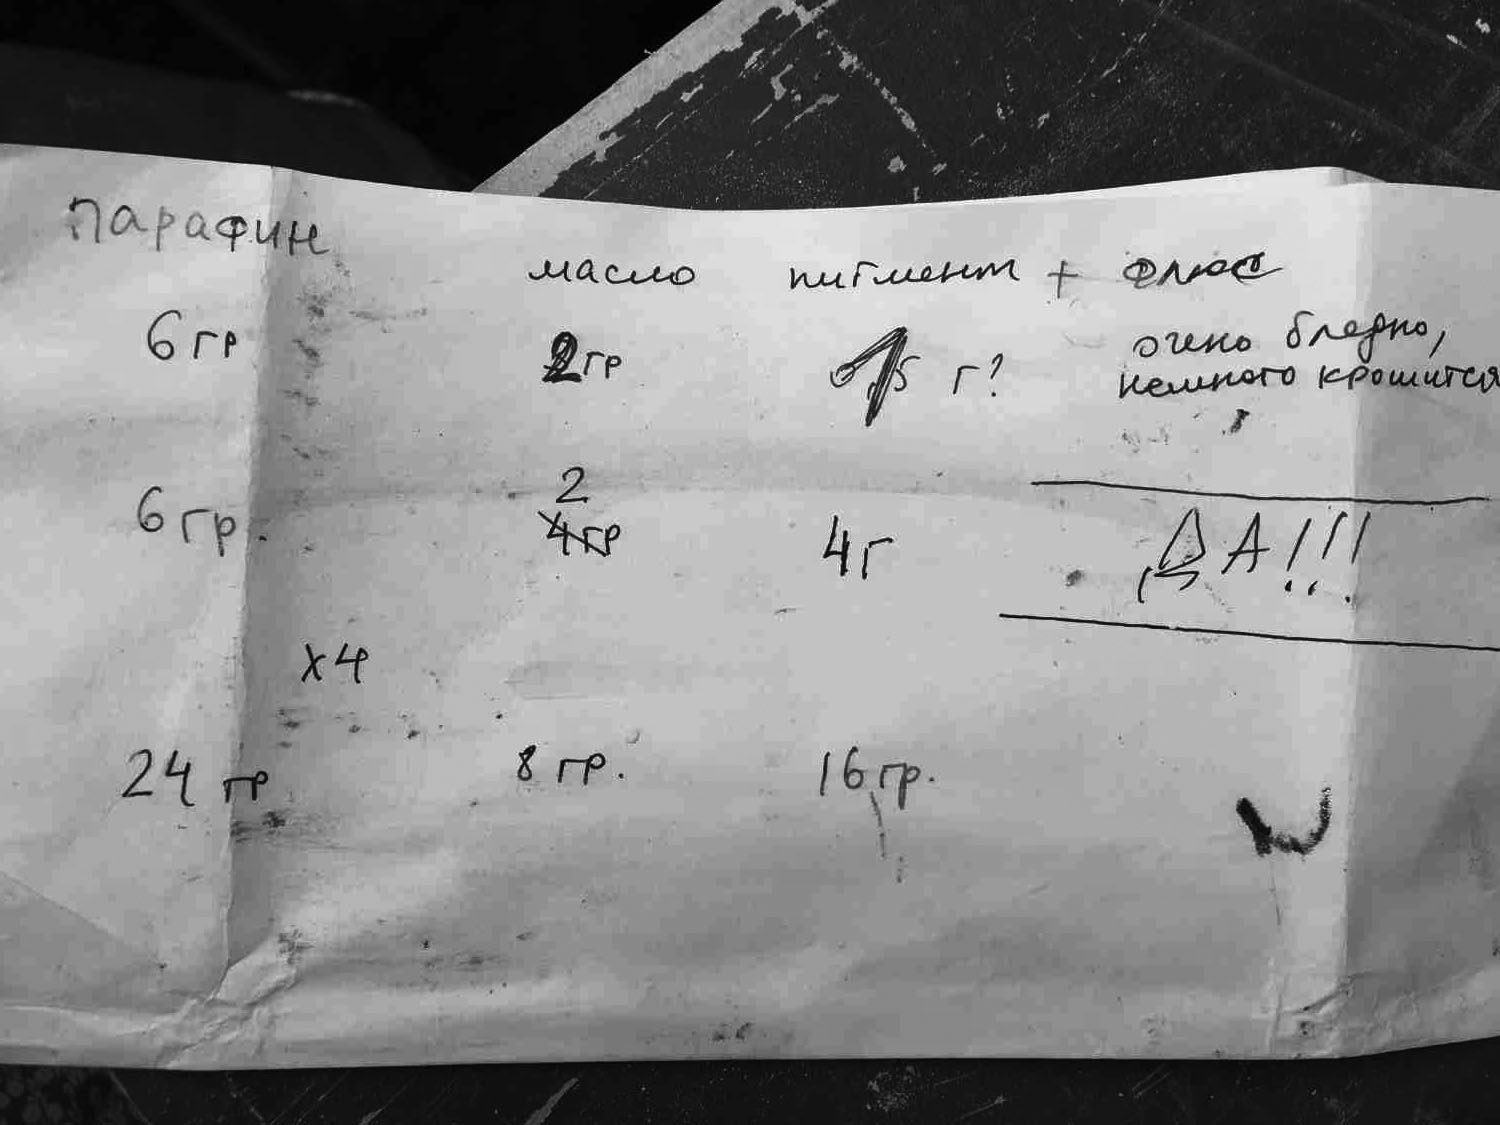 парафин
масло пигмент + флюс
6 гр 2гр г? очень бледно,
немного крошится
2
6 гр. 4гр 4г ДА!!!
x4
24 гр 8 гр. 16 гр.